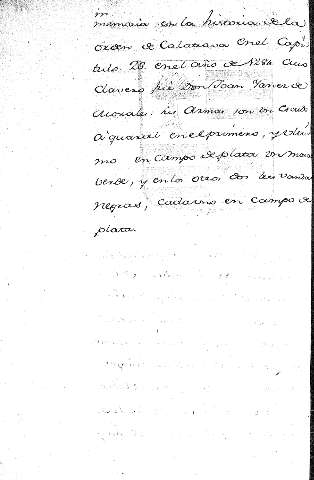 memoria en la historia de la
orden de Calatrava en el Capi
tulo 28 en el año de 1284 cuio
Clavero fue Don Joan Yanez de
Morales. sus Armas son un Escudo
a quartel en el primero, y ulti
mo en campo de plata un moral
verde, y en los otros dos tres vandas
negras, cada uno en campo de
plata.